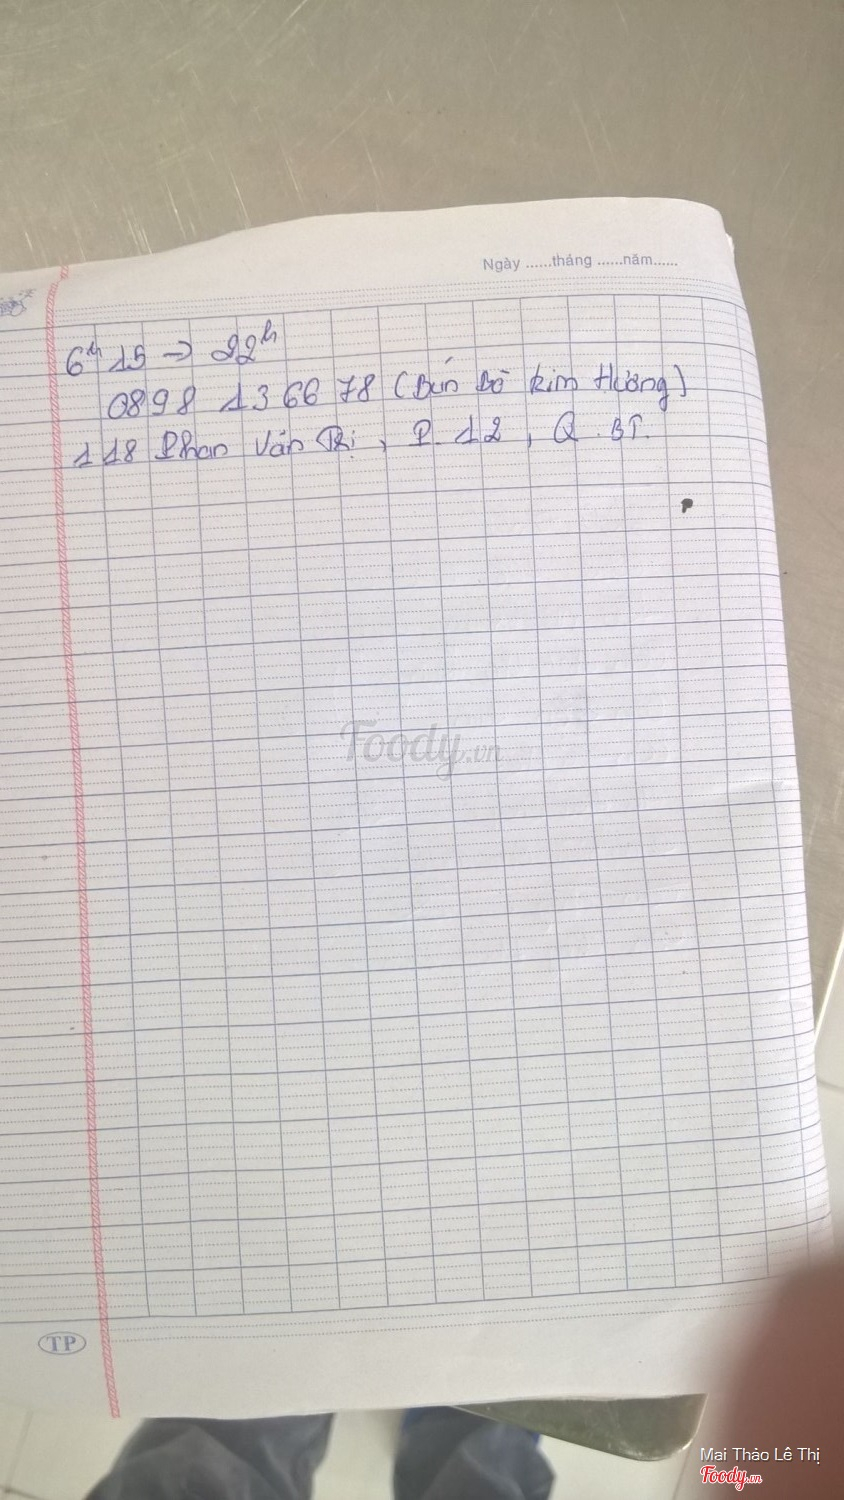 Ngày ......tháng ......năm......
6h 15 → 22h
0898 136678 (Bún Bò Kim Hương)
118 Phan Văn Trị, P. 12, Q. BT.
Foody.vn
TP
Mai Thảo Lê Thị
Foody.vn